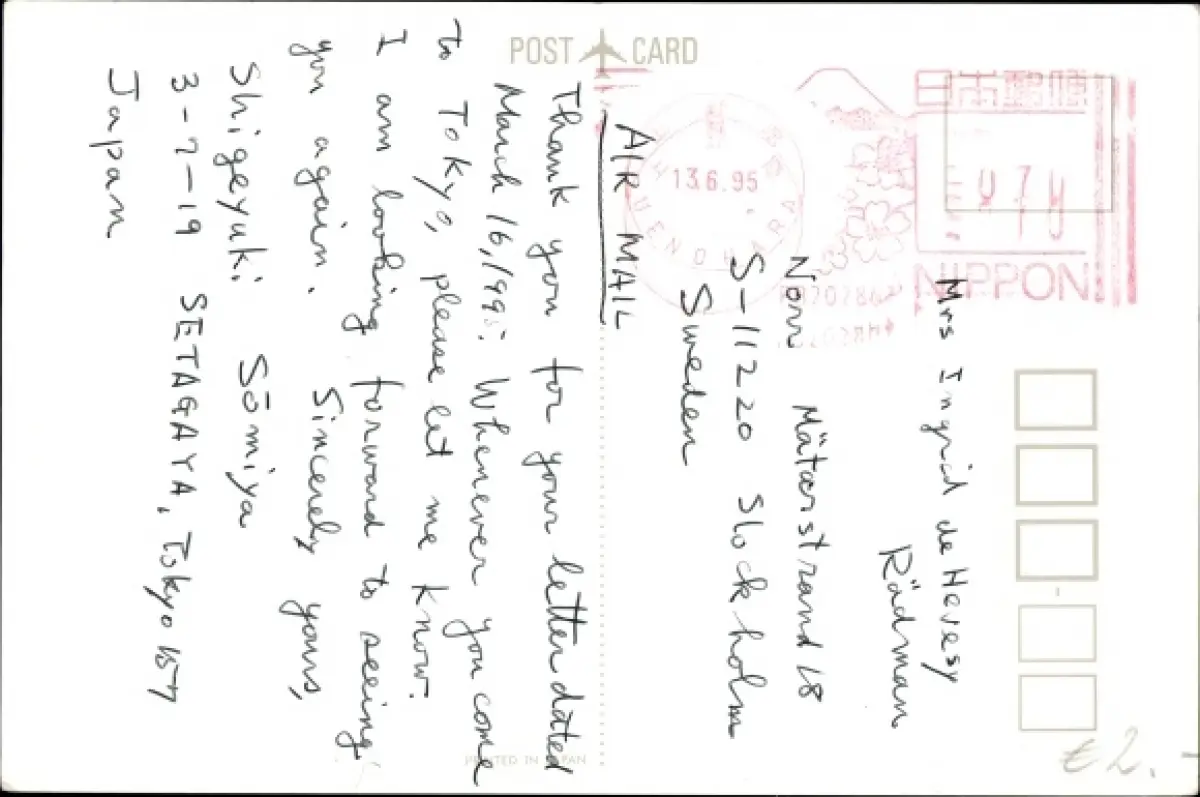 POST CARD
日本郵便
NIPPON
13.6.95
Mrs Ingrid de Hevesy
Rådman
Norr Mätarstrand 18
S-11220 Stockholm
Sweden
AIR MAIL
Thank you for your letter dated
March 16, 1995. Whenever you come
to Tokyo, please let me know.
I am looking forward to seeing
you again. Sincerely yours,
Shigeyuki Sōmiya
3-7-19 SETAGAYA, Tokyo 157
Japan
PRINTED IN JAPAN
€2.